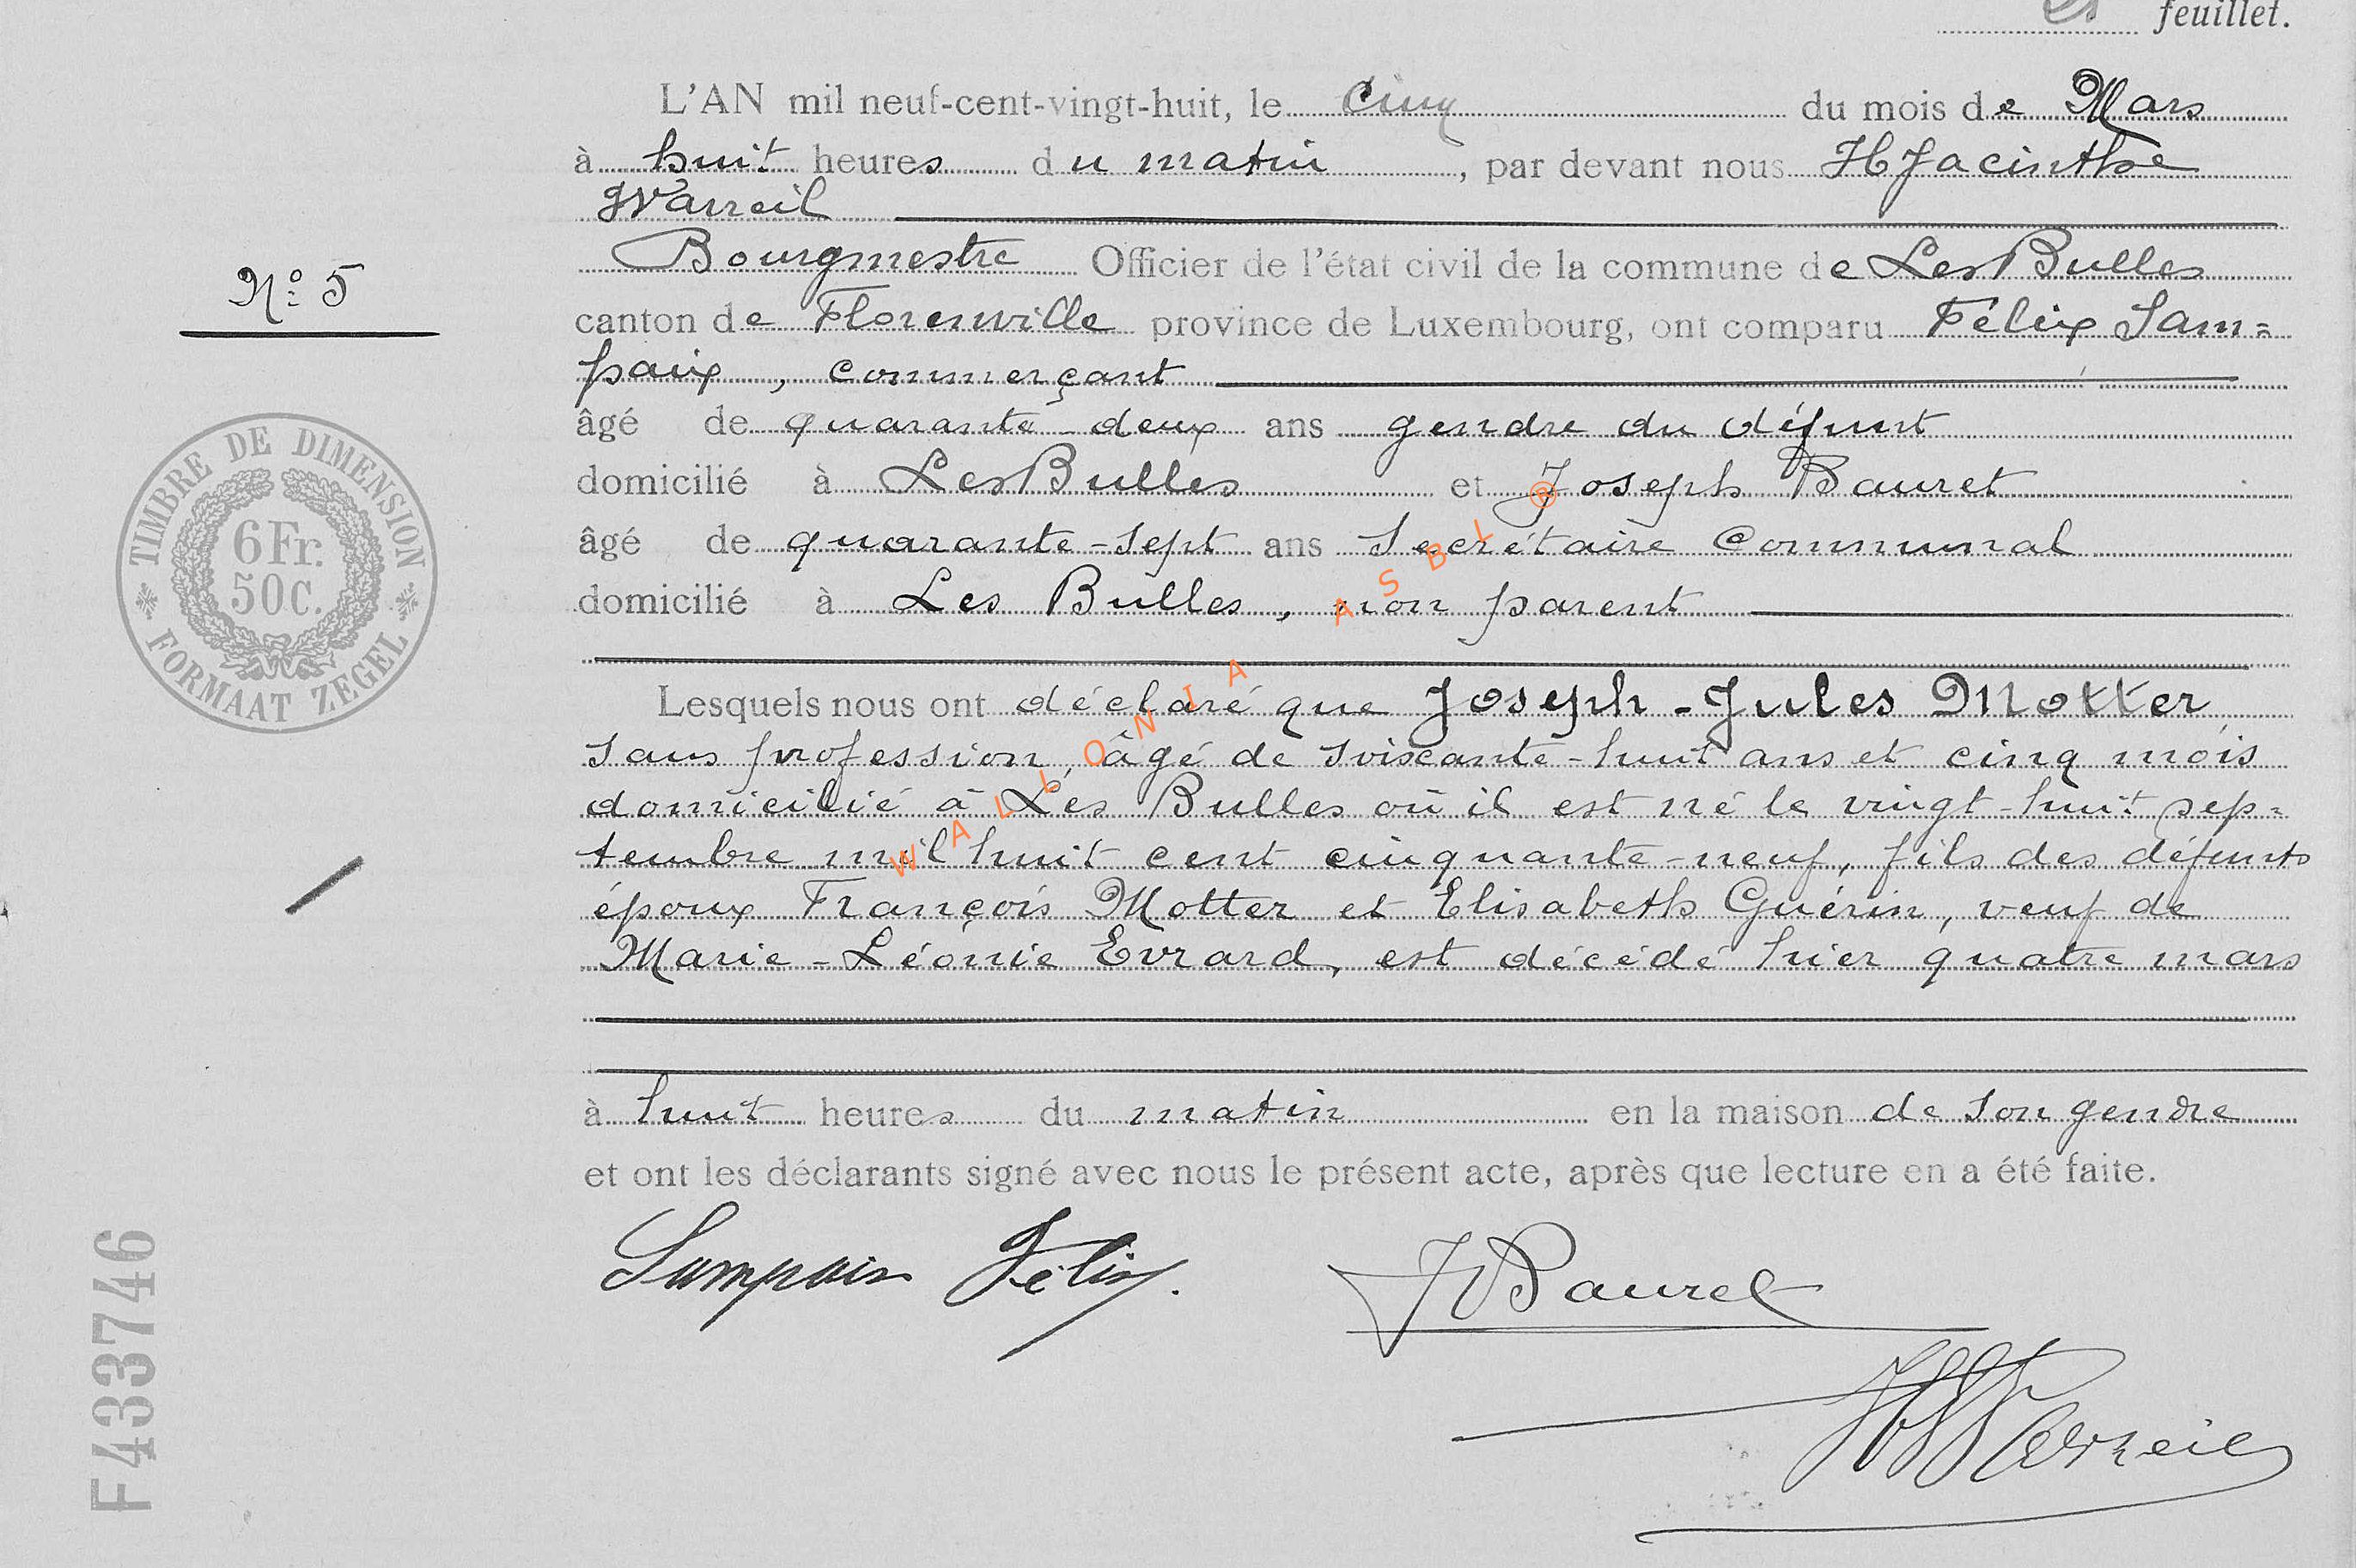 feuillet.
L'AN mil neuf-cent-vingt-huit, le cinq du mois de Mars
à huit heures du matin, par devant nous Hyacinthe
Warreil
Bourgmestre Officier de l'état civil de la commune de Les Bulles
N° 5
canton de Florenville province de Luxembourg, ont comparu Félix Sam=
paix, commerçant
âgé de quarante-deux ans gendre du défunt
domicilié à Les Bulles et Joseph Bauret
âgé de quarante-sept ans Secrétaire Communal
domicilié à Les Bulles, non parent
TIMBRE DE DIMENSION
6 Fr.
50 C.
FORMAAT ZEGEL
WALLONIA ASBL ®
Lesquels nous ont déclaré que Joseph-Jules Motter,
sans profession, âgé de soixante-huit ans et cinq mois
domicilié à Les Bulles où il est né le vingt-huit sep=
tembre mil huit cent cinquante-neuf, fils des défunts
époux François Motter et Elisabeth Guérin, veuf de
Marie-Léonie Evrard, est décédé hier quatre mars
à huit heures du matin en la maison de son gendre
et ont les déclarants signé avec nous le présent acte, après que lecture en a été faite.
Sampaix Félix.
J Bauret
H Warreil
F433746